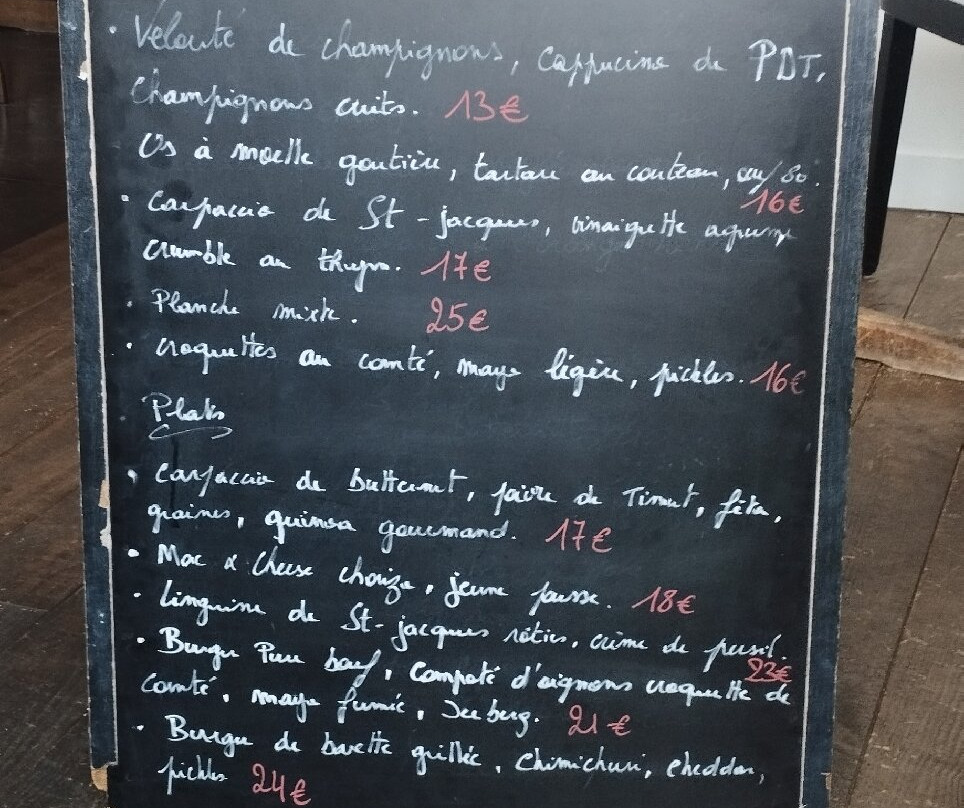 · Velouté de champignons, cappucino de PDT,
champignons cuits. 13€
Os à moelle goutière, tartare au couteau,
16€
· Carpaccio de St-jacques, vinaigrette agrume
crumble au thym. 17€
· Planche mixte. 25€
· croquettes au comté, mayo légère, pickles. 16€
· Plats
· Carpaccio de butternut, poivre de Timut, féta,
graines, quinoa gourmand. 17€
· Mac & Cheese chorizo, jeune pousse. 18€
· Linguine de St-jacques rôties, crème de persil.
23€
· Burger Pure bœuf, compoté d'oignons croquette de
comté, mayo fumée, Iceberg. 21€
· Burger de bavette grillée, chimichuri, cheddar,
pickles 24€